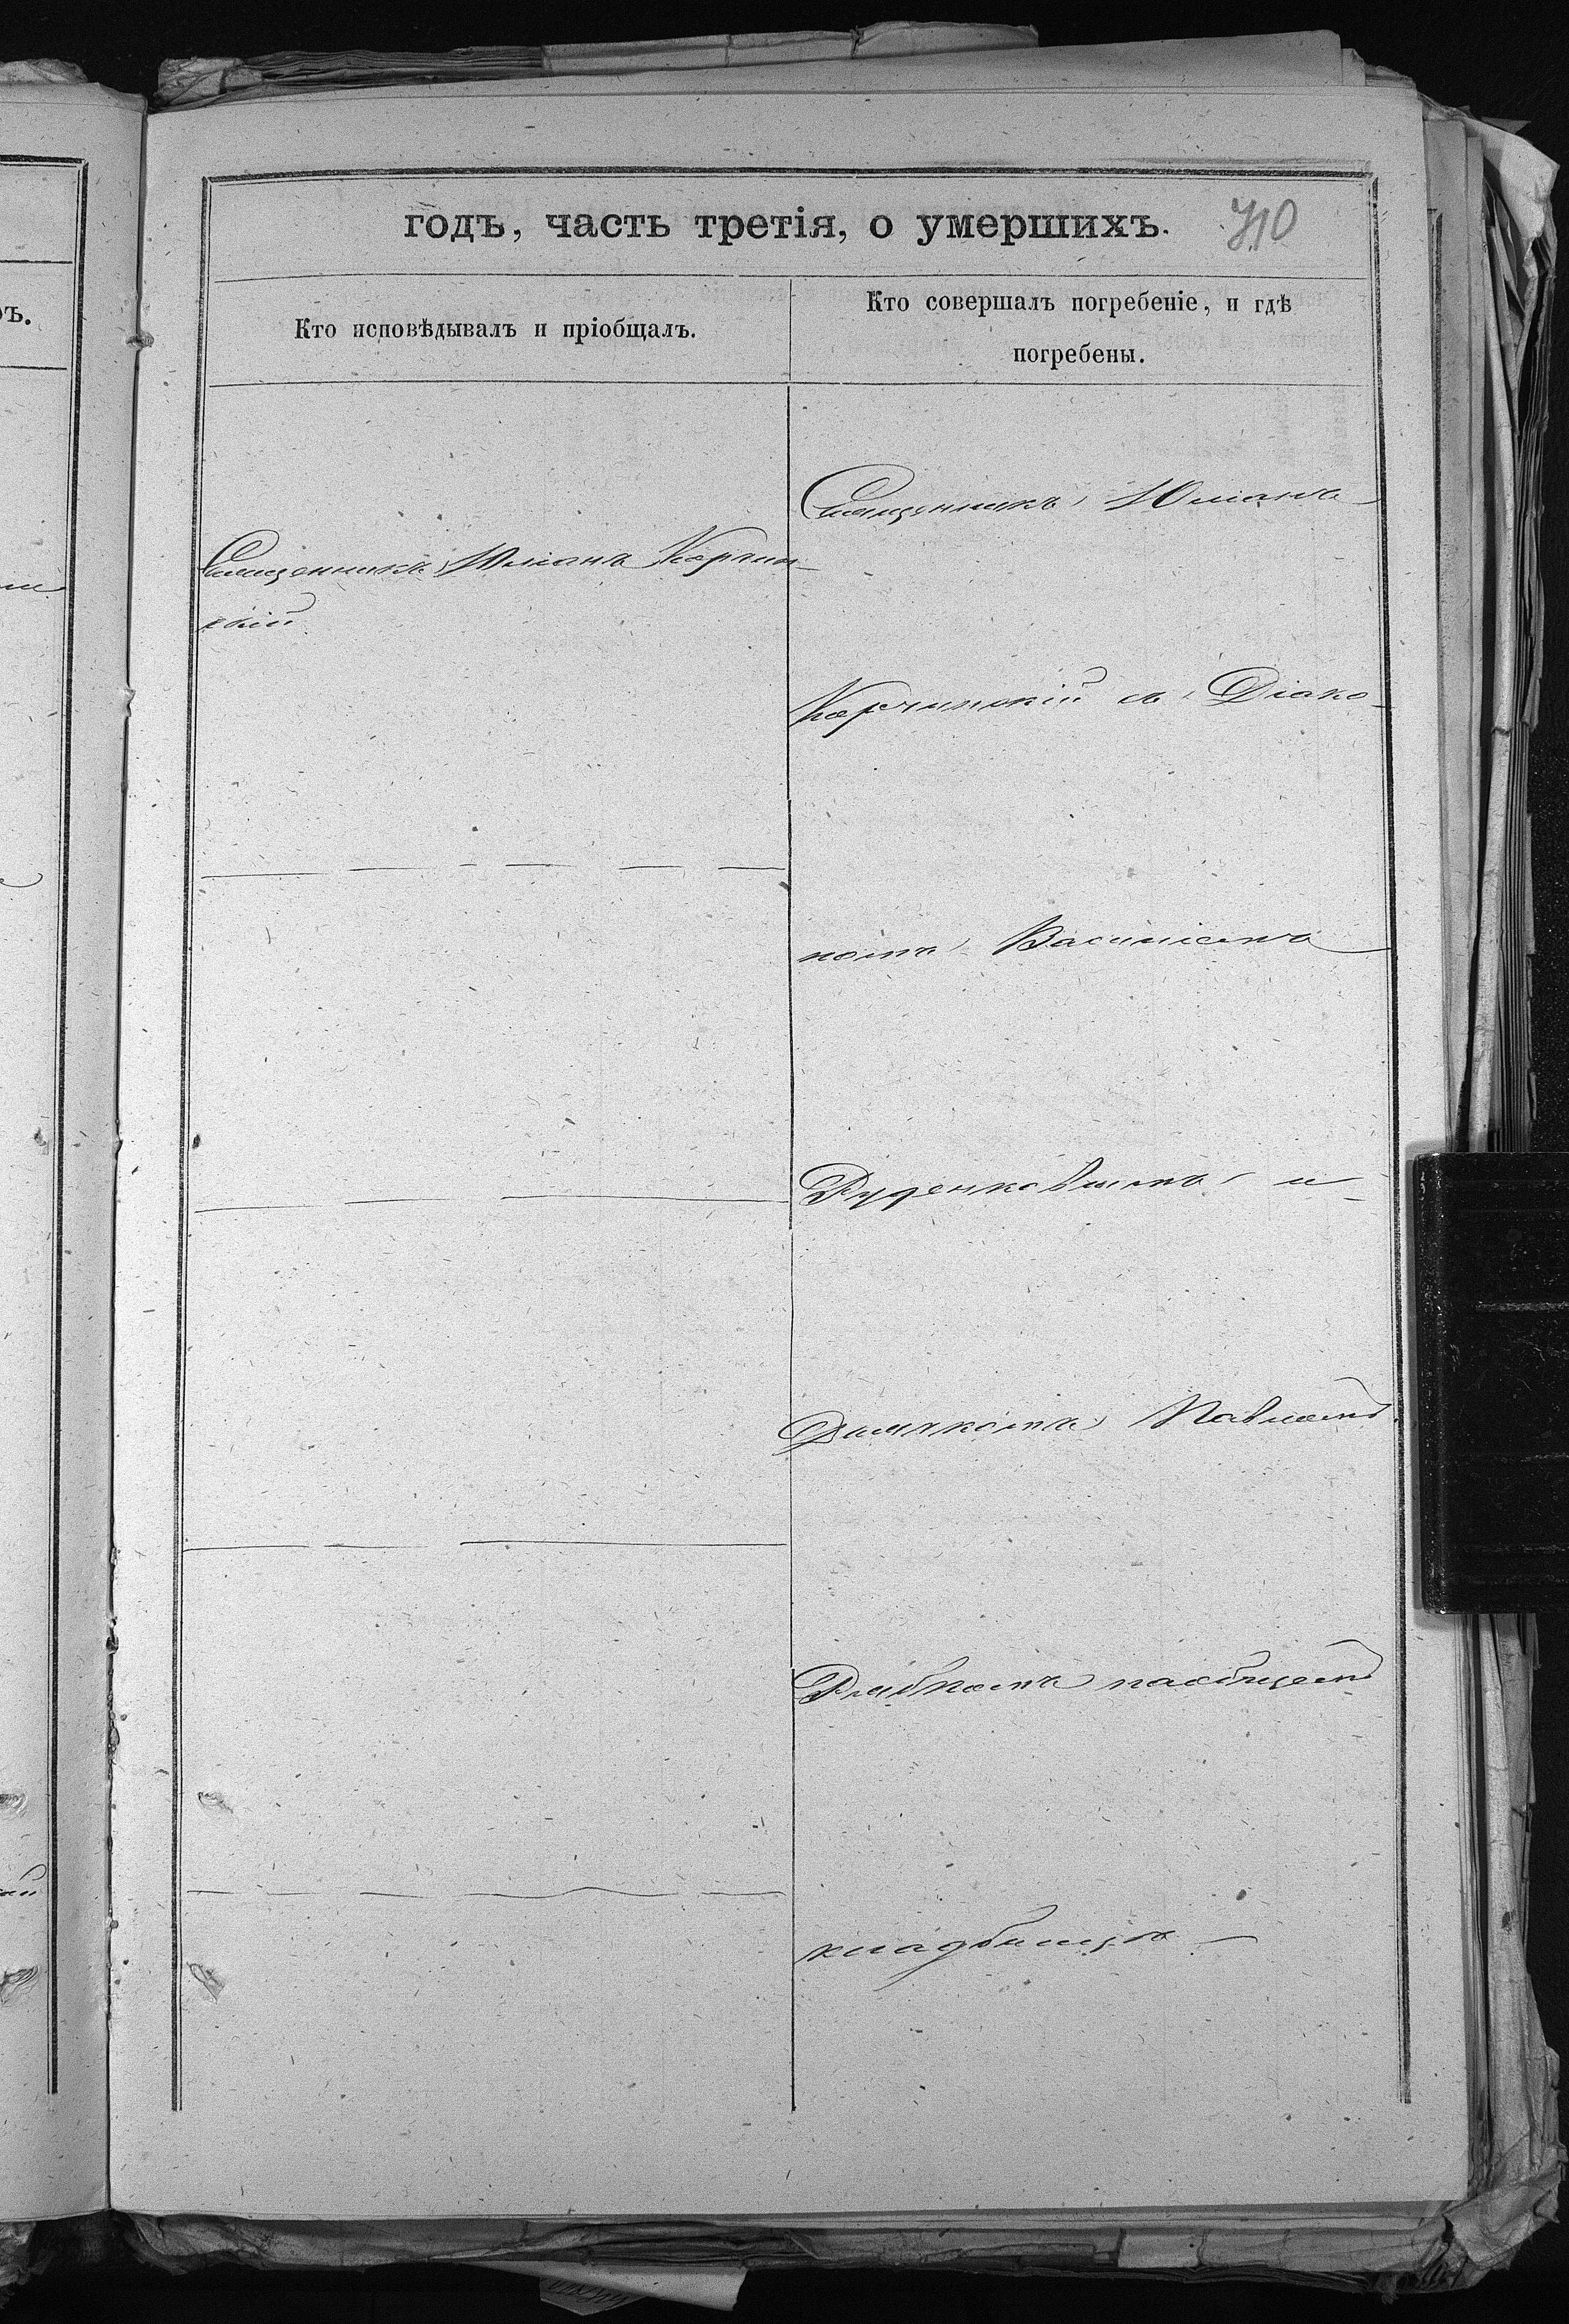 годъ, часть третія, о умершихъ. 710
Кто исповѣдывалъ и пріобщалъ.
Кто совершалъ погребеніе, и гдѣ
погребены.
Священникъ Юліанъ Карчин-
скій
Священникъ Юліанъ
Карчинскій съ Діако-
номъ Василіемъ
Руденковымъ и
Дьячкомъ Павломъ
кладбищѣ
ръ.